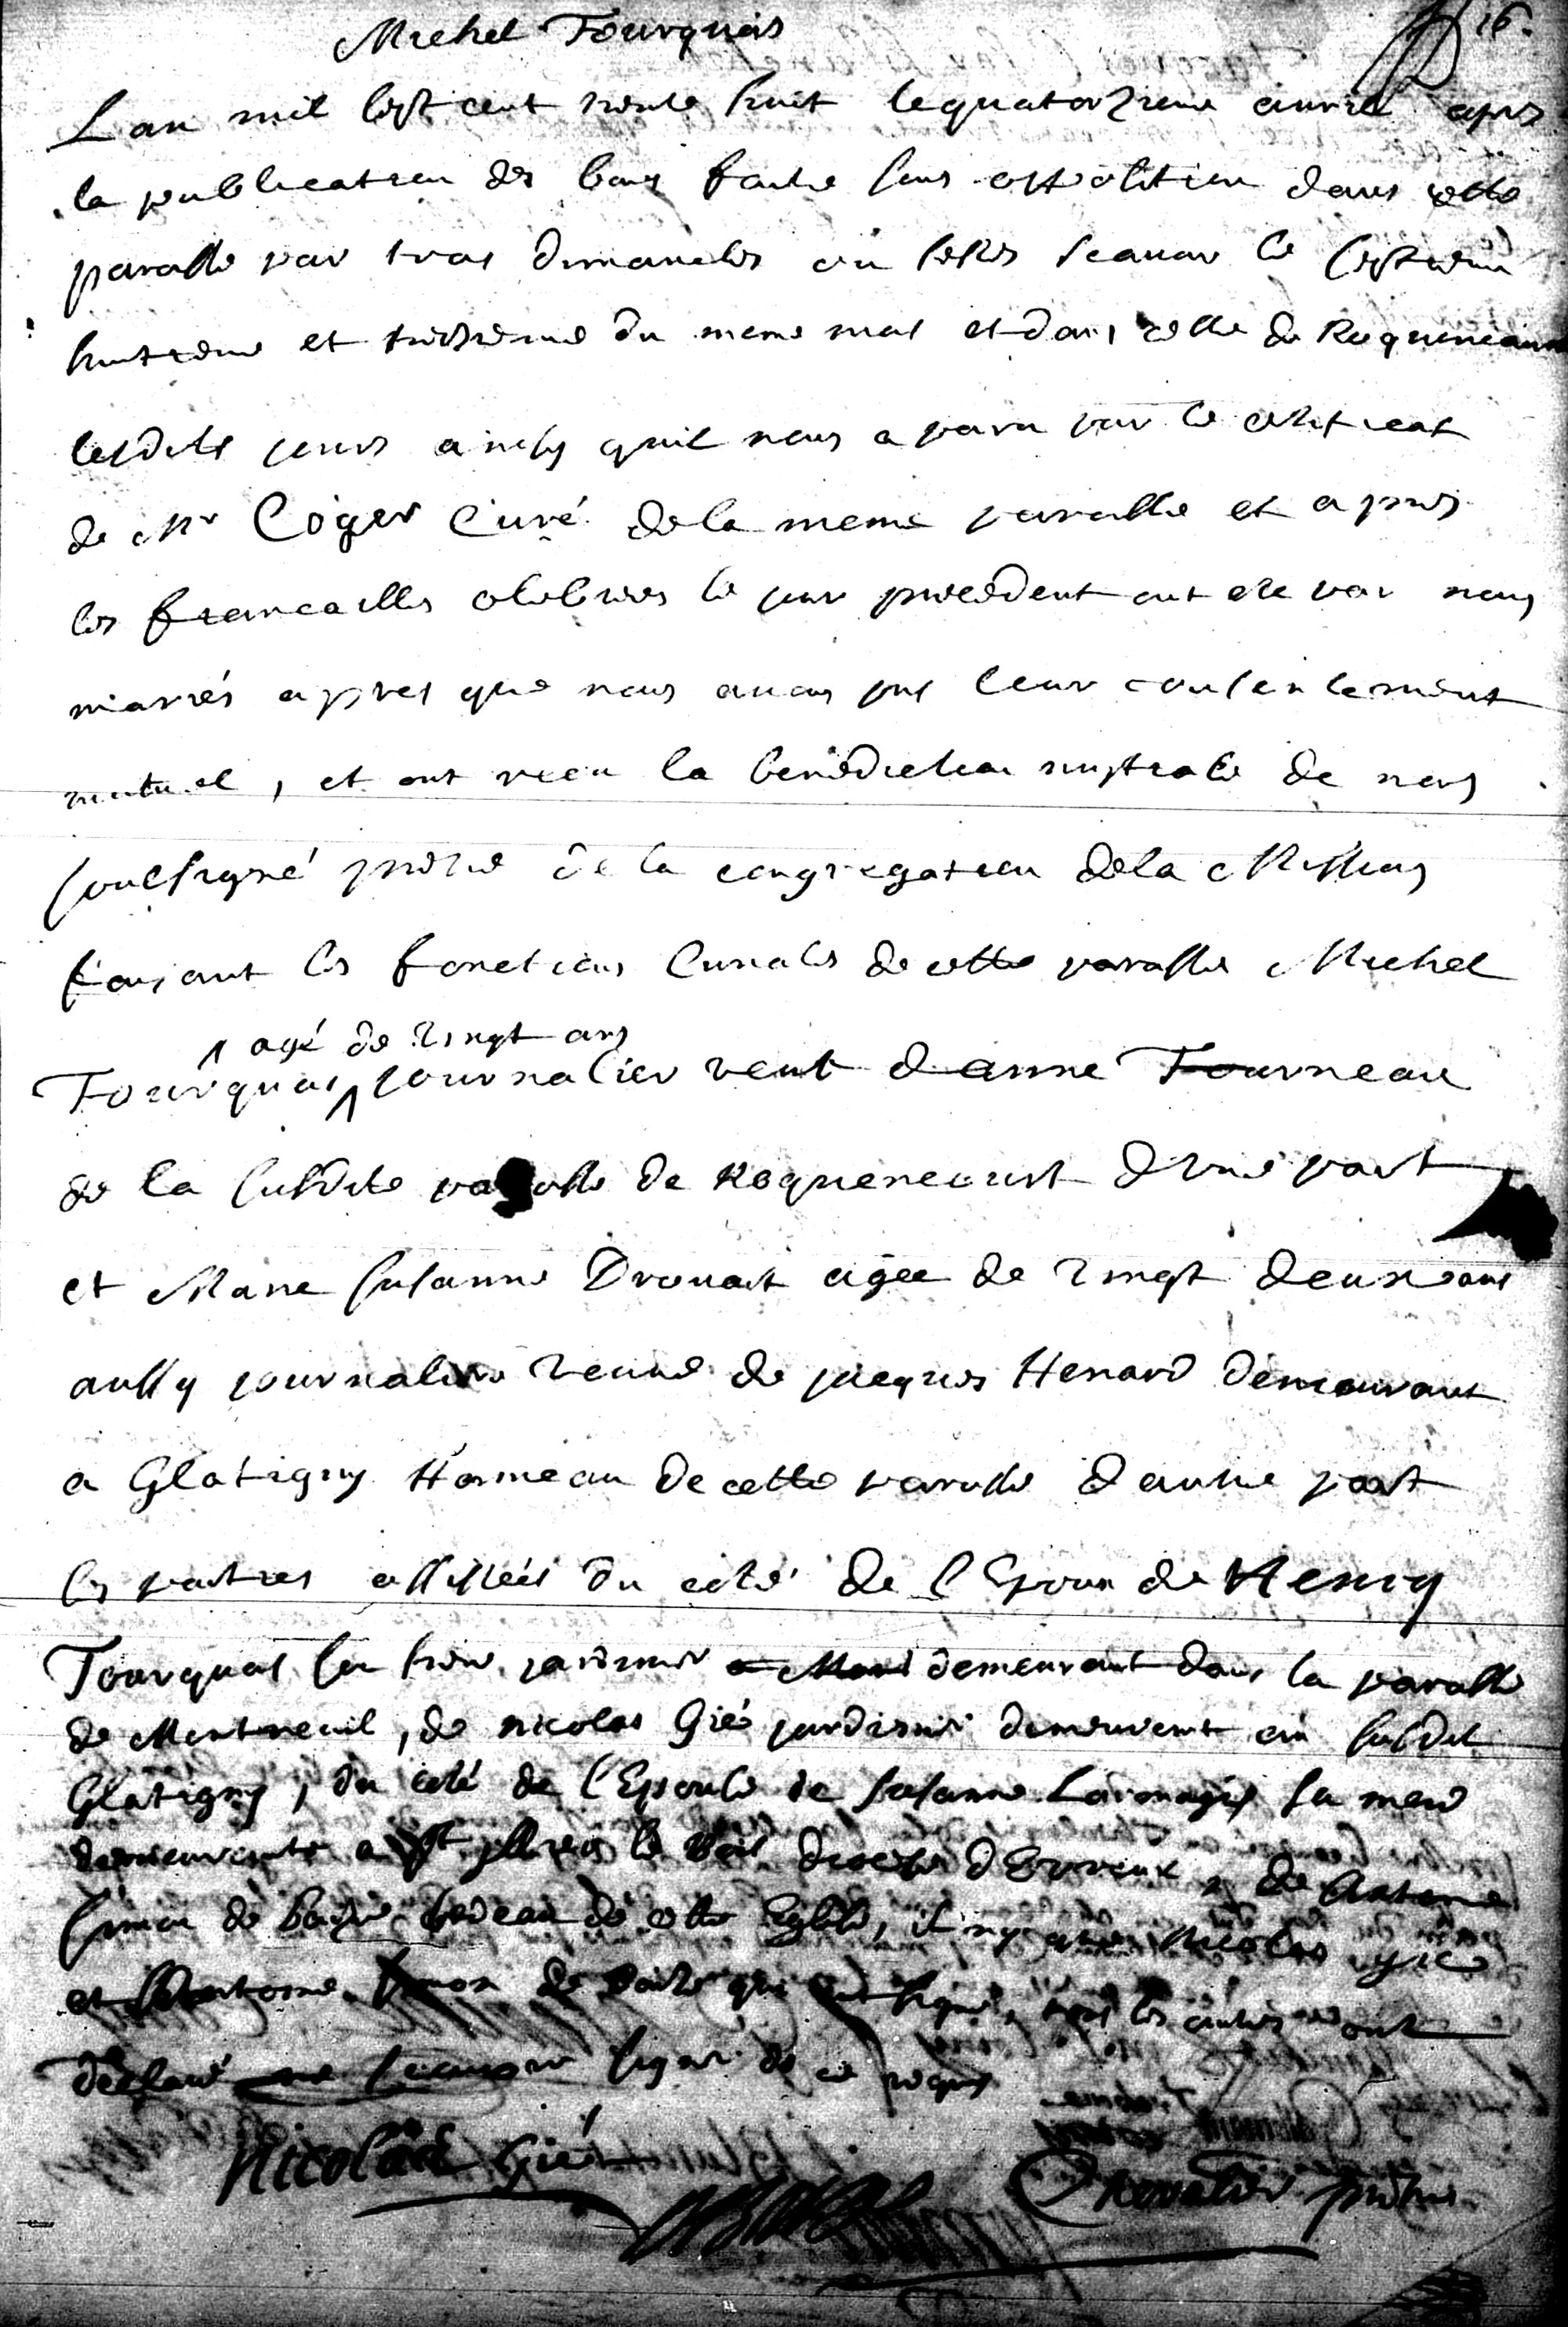 Michel Fourquois
16.
Lan mil sept cent trente huit le quatorzieme avril apres
la publication des bans faite sans opposition dans cette
paroisse par trois dimanches ou festes scavoir le septieme
huitieme et treizieme du meme mois et dans celle de Roquencourt
lesdits jours ainsy quil nous a paru par le certificat
de Mr Coger Curé de la meme paroisse et apres
les fiancailles celebrees le jour precedent ont ete par nous
mariés apres que nous avons pris leur consentement
mutuel, et ont receu la benediction nuptiale de nous
soussigné pretre de la congregation de la Mission
faisant les fonctions Curiales de cette paroisse Michel
agé de vingt ans
Fourquois journalier veuf d anne Fourneau
de la susdite paroisse de Roquencourt d une part
et Marie Susanne Drouart agée de vingt deux ans
aussy journaliere veuve de jacques Henard demeurant
a Glatigny Hameau de cette paroisse d autre part
les parties assistées du coté de l Epoux de Henry
Fourquois son frere jardinier demeurant dans la paroisse
de Montreuil, de nicolas Gié jardinier demeurant au susdit
Glatigny, du coté de l Epouse de susanne sa mere
demeurante a St diocese d Evreux, de Antoine
Simon de bedeau de cette Eglise, il ny a que Nicolas gié
et Antoine Simon de qui ont signé, tous les autres ont
declaré ne scavoir signer de ce requis
Nicolas Gié
Chevalier pretre